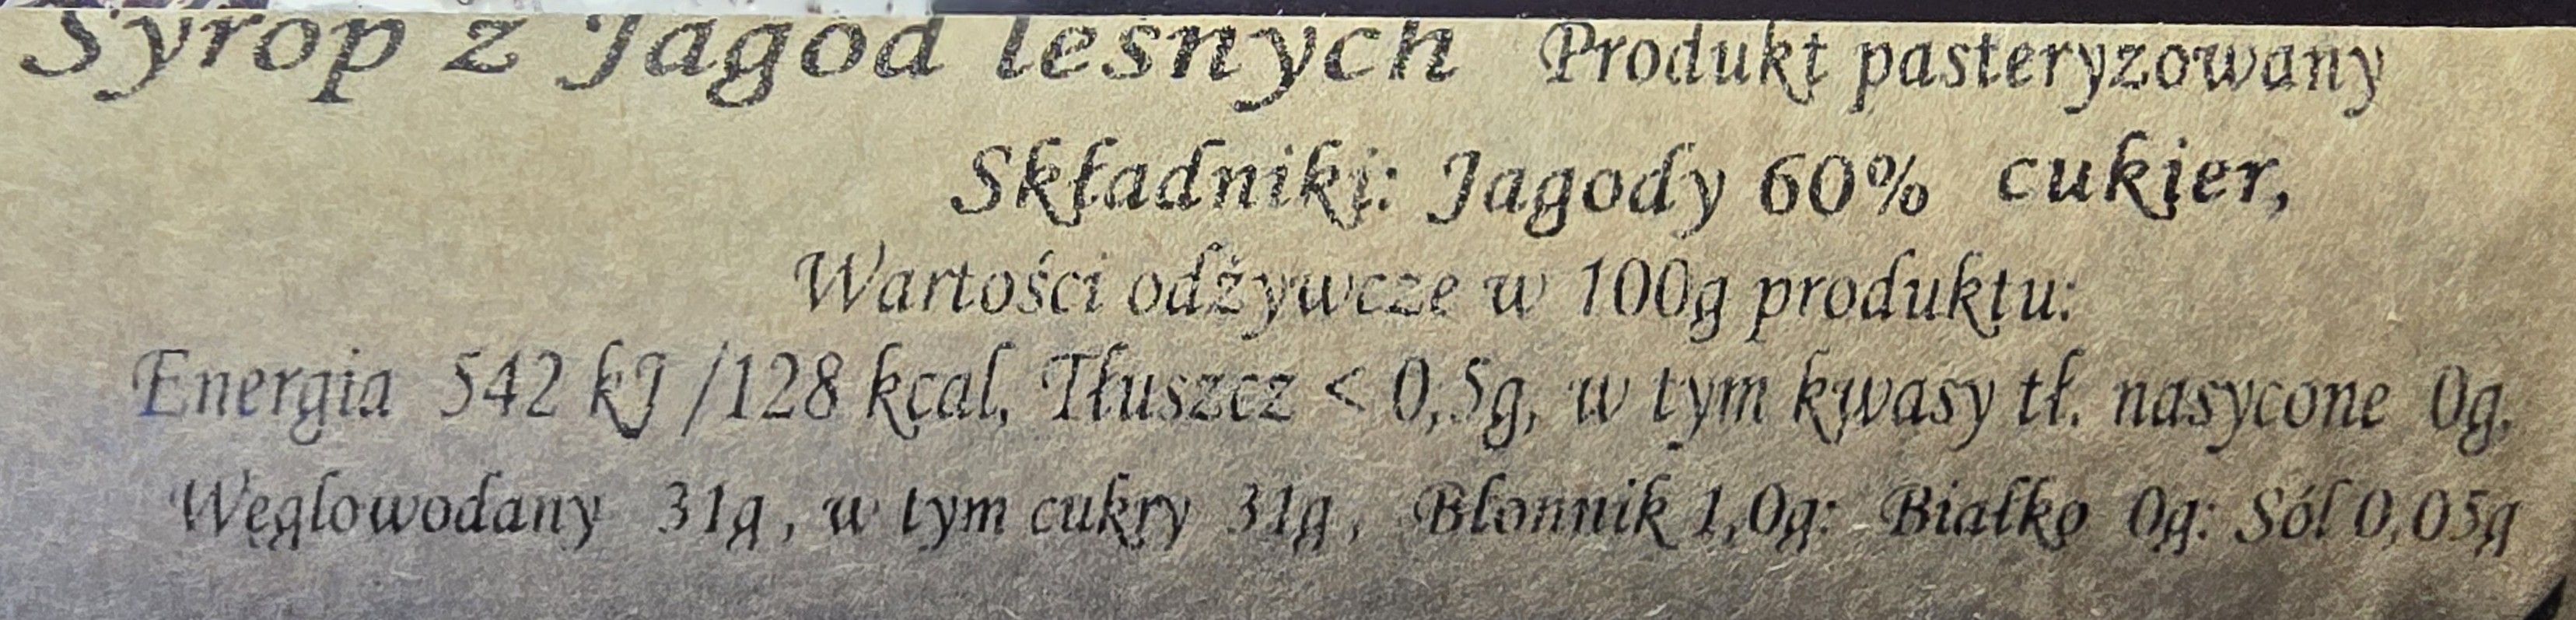 Syrop z Jagod leśnych Produkt pasteryzowany
Składniki: Jagody 60% cukier,
Wartości odżywcze w 100g produktu:
Energia 542 kJ /128 kcal, Tłuszcz < 0,5g, w tym kwasy tł. nasycone 0g,
Węglowodany 31g, w tym cukry 31g, Błonnik 1,0g: Białko 0g: Sól 0,05g